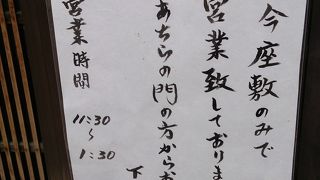 今座敷のみで
営業致しておりま
あちらの門の方からお
下
営業時間
11:30
~
1:30